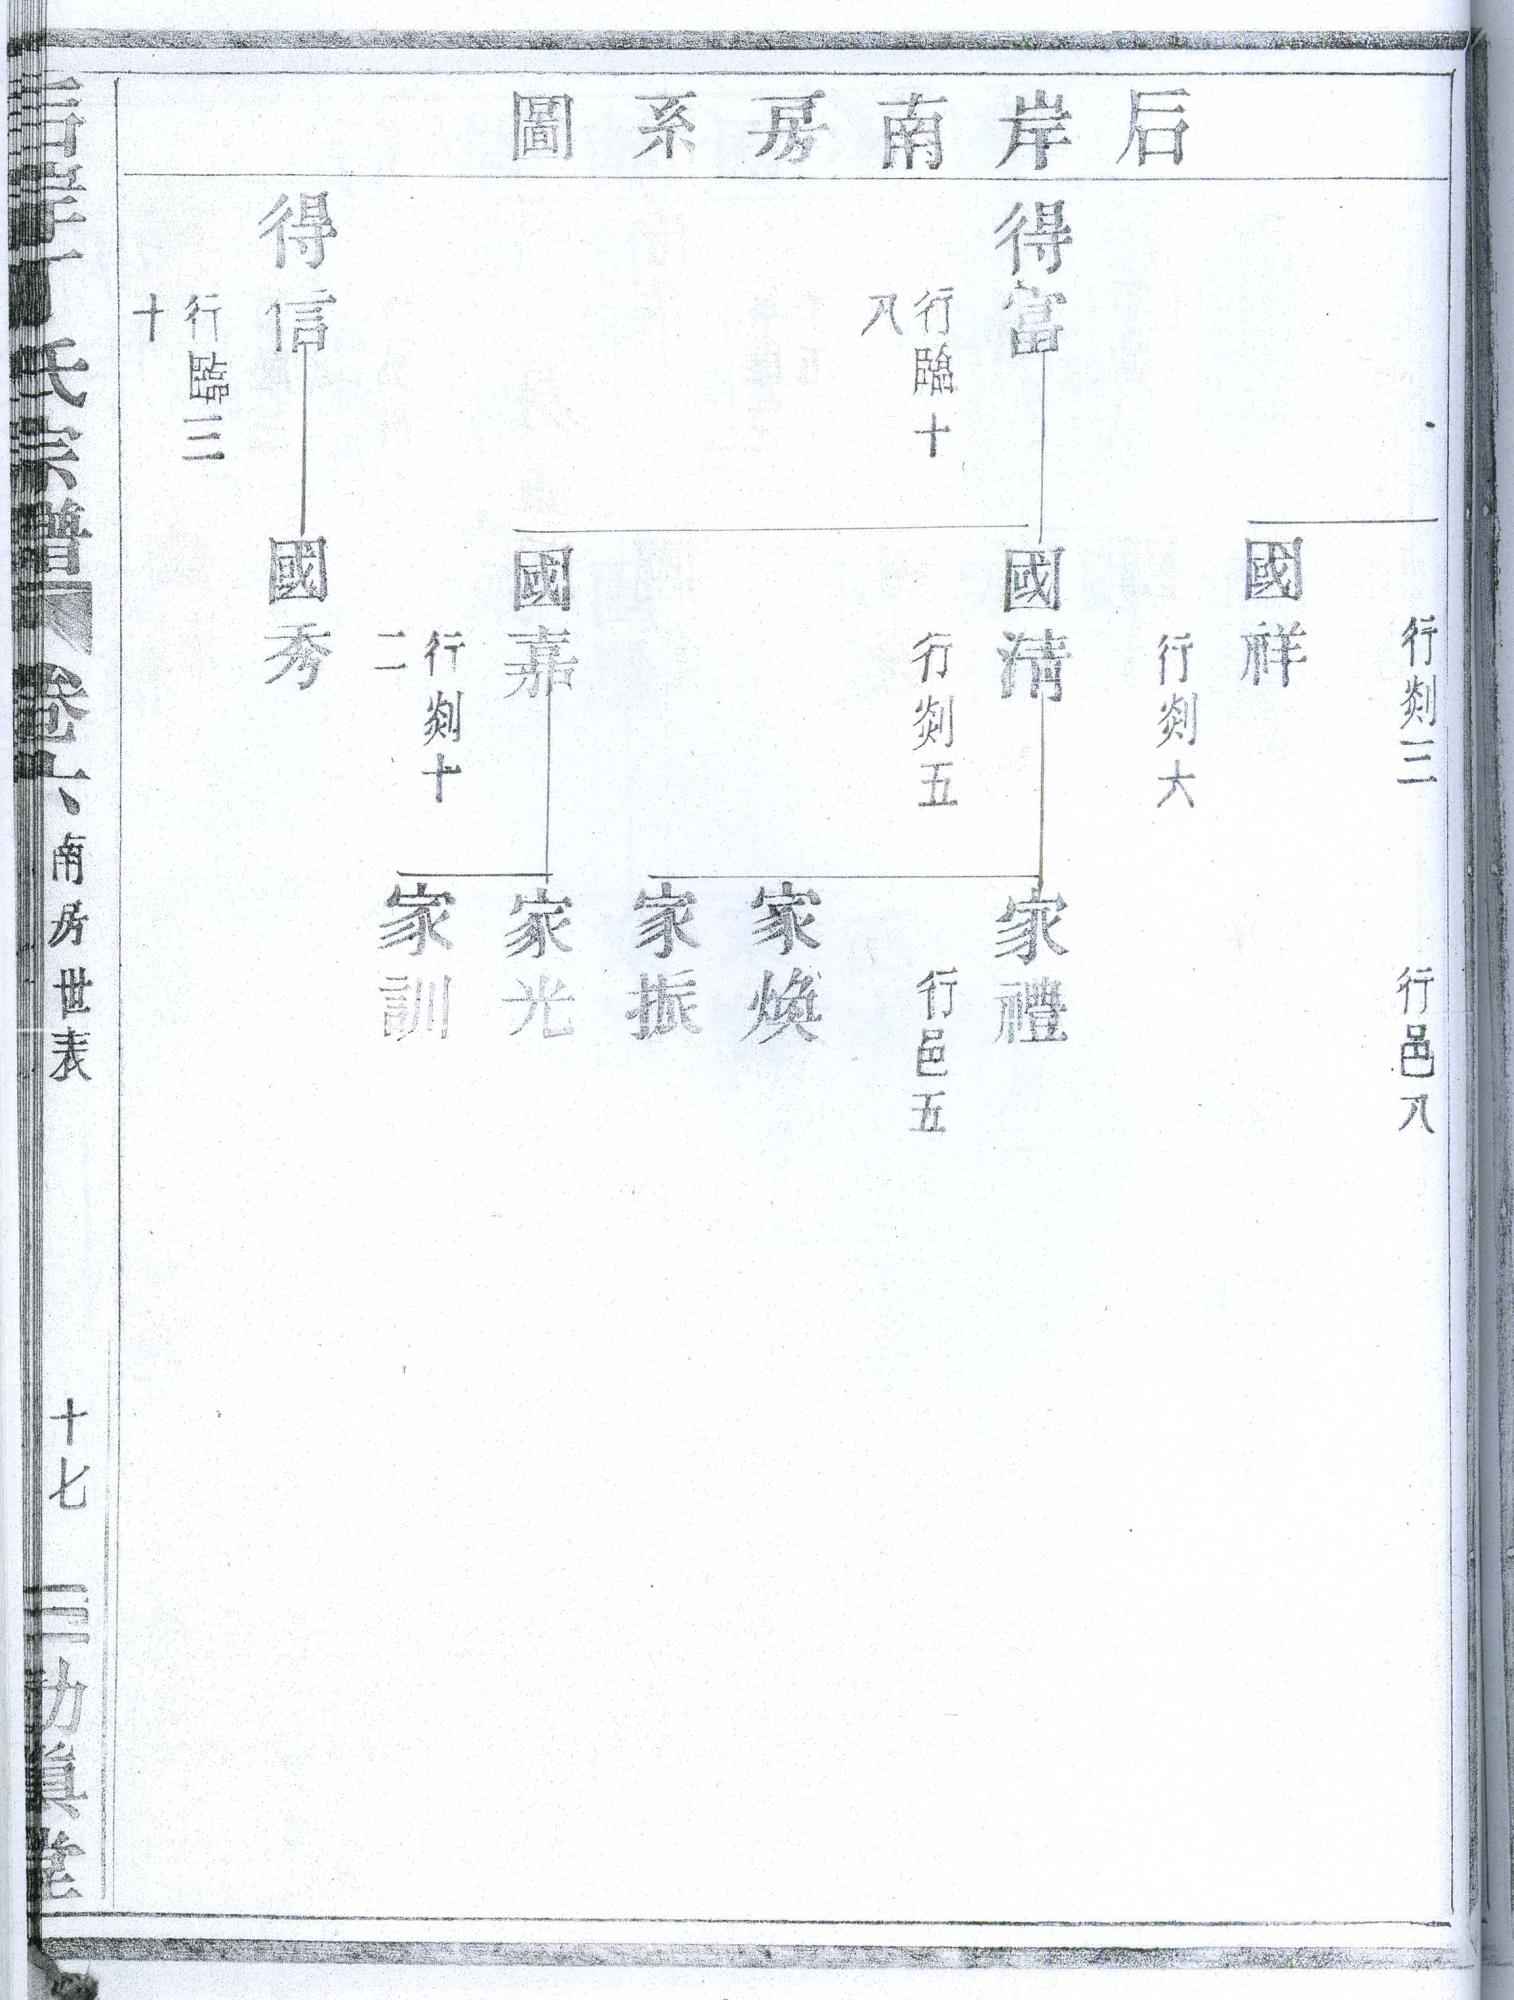 后岸南房系圖
行剡三
行邑八
國祥
行剡六
得富
行臨十
八
國清
行剡五
家禮
行邑五
家煥
家振
國嘉
行剡十
二
家光
家訓
得信
行臨三
十
國秀
氏宗譜
卷六
南房世表
十七
堂